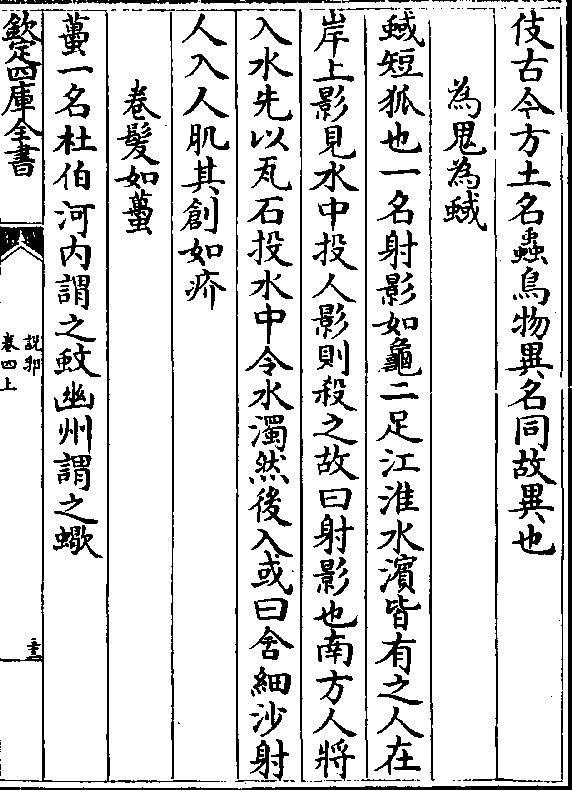 伎古今方土名蟲鳥物異名同故異也
為鬼為蜮
蜮短狐也一名射影如龜二足江淮水濱皆有之人在
岸上影見水中投人影則殺之故曰射影也南方人將
入水先以瓦石投水中令水濁然後入或曰含細沙射
人入人肌其創如疥
卷髮如蠆
蠆一名杜伯河内謂之蚊幽州謂之蠍
欽定四庫全書
說郛
卷四上
三十三